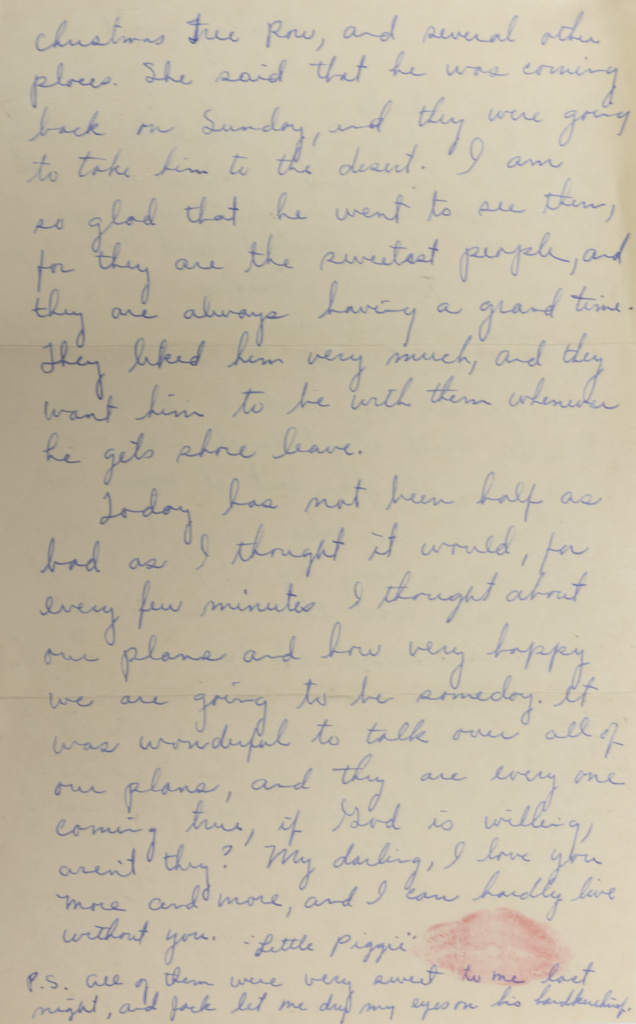 Christmas Tree Row, and several other
places. She said that he was coming
back on Sunday, and they were going
to take him to the desert. I am
so glad that he went to see them,
for they are the sweetest people, and
they are always having a grand time.
They liked him very much, and they
want him to be with them whenever
he gets shore leave.
Today has not been half as
bad as I thought it would, for
every few minutes I thought about
our plans and how very happy
we are going to be someday. It
was wonderful to talk over all of
our plans, and they are every one
coming true, if God is willing,
aren't they? My darling, I love you
more and more, and I can hardly live
without you. "Little Piggie"
P.S. All of them were very sweet to me last
night, and Jack let me dry my eyes on his handkerchief.